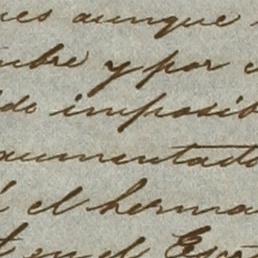 ues aunque
mbre y por
do imposib
aumentado
el herma
en el